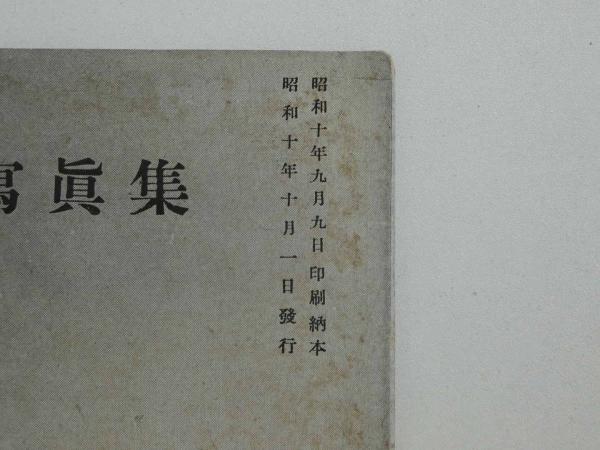 昭和十年九月九日印刷納本
昭和十年十月一日發行
寫眞集